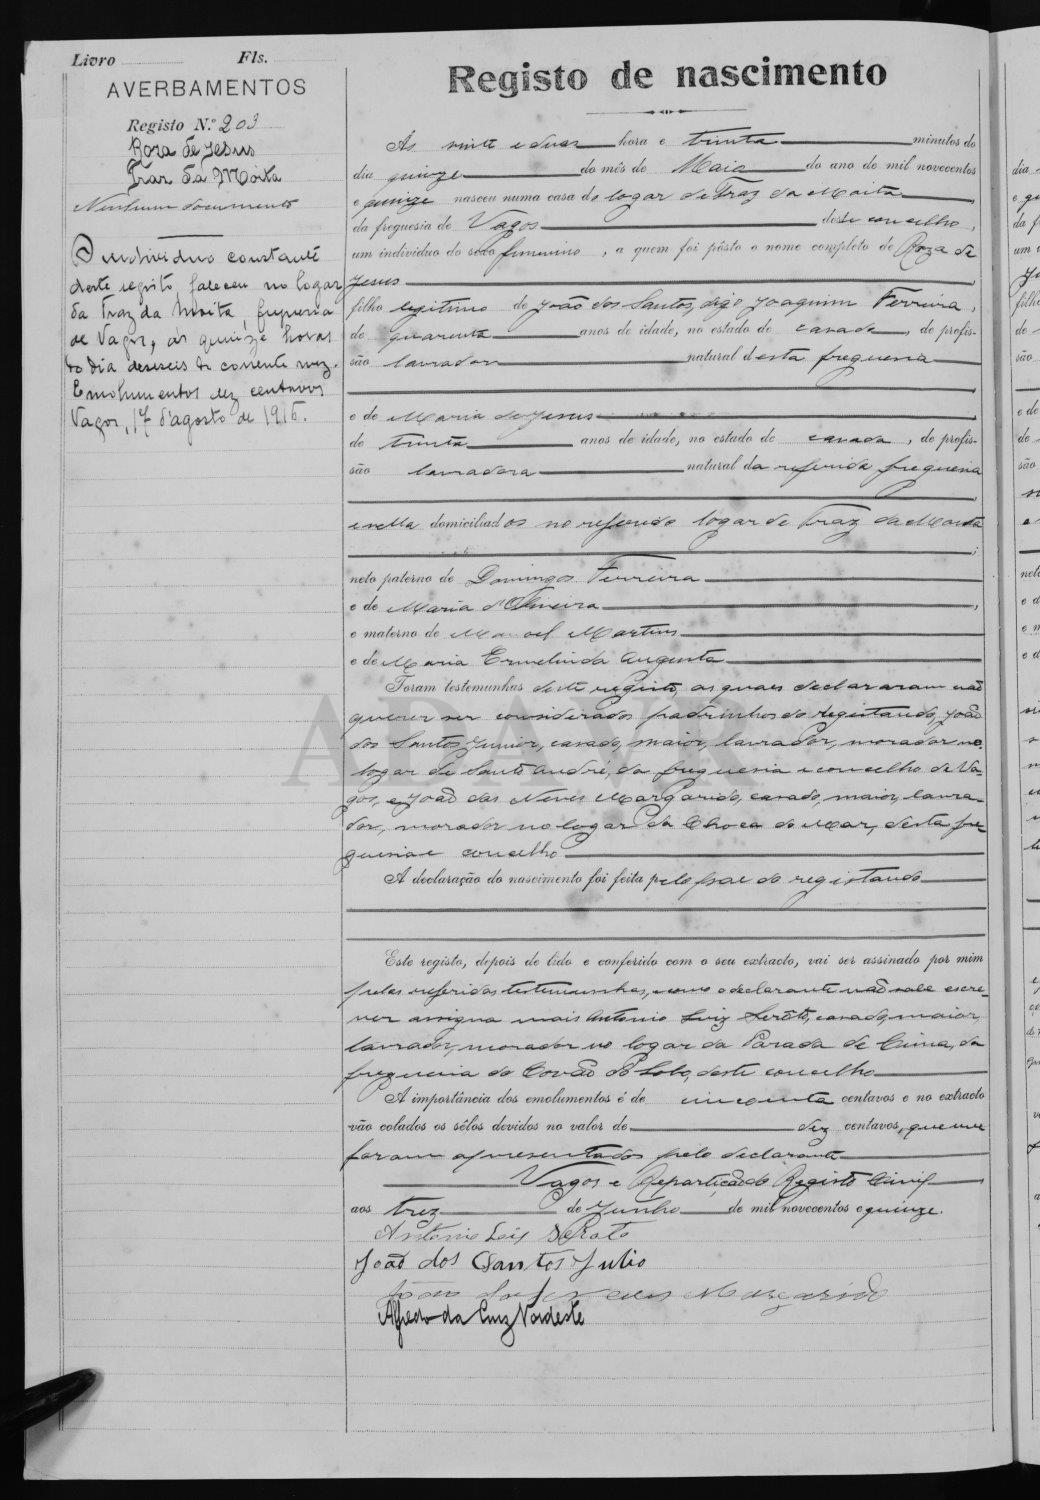 Livro Fls.
AVERBAMENTOS
Registo N.º 203
Roza de Jesus
Traz da Moita
Nenhum documento
O individuo constante
deste registo faleceu no logar
da Traz da Moita, freguesia
de Vagos, ás quinze horas
do dia deseseis do corrente mez.
Emolumentos dez centavos
Vagos, 17 d'agosto de 1916.
Registo de nascimento
Ás vinte e duas hora e trinta minutos do
dia quinze do mês de Maio do ano de mil novecentos
e quinze nasceu numa casa do logar de Traz da Moita,
da freguesia de Vagos deste concelho,
um individuo do sexo femenino, a quem foi pôsto o nome completo de Roza de
Jesus
filho legitimo de João dos Santos, digo Joaquim Ferreira,
de quarenta anos de idade, no estado de casado, de profis-
são lavrador natural desta freguesia
e de Maria de Jesus
de trinta anos de idade, no estado de casada, de profis-
são lavradora natural da referida freguesia
e nella domiciliados no referido logar de Traz da Moita
neto paterno de Domingos Ferreira
e de Maria d'Oliveira
e materno de Manoel Martins
e de Maria Ermelinda Augusta
Foram testemunhas deste registo, as quaes declararam não
querer ser considerados padrinhos do registando, João
dos Santos Junior, casado, maior, lavrador, morador no
logar de Santo André, da freguesia e concelho de Va-
gos, e João das Neves Margarido, casado, maior, lavra-
dor, morador no logar da Choca do Mar, desta fre-
guesia e concelho
A declaração do nascimento foi feita pelo pae do registando
Este registo, depois de lido e conferido com o seu extracto, vai ser assinado por mim
pelas referidas testemunhas, como o declarante não sabe escre-
ver assigna mais Antonio Luiz casado, maior,
lavrador, morador no logar da Parada de Cima, da
freguesia do Covão do Lobo, deste concelho
A importância dos emolumentos é de cincoenta centavos e no extracto
vão colados os sêlos devidos no valor de dez centavos, que me
foram apresentados pelo declarante
Vagos e Repartição do Registo Civil
aos trez de Junho de mil novecentos e quinze.
Antonio Luis
João dos Santos Julio
João das Neves Margarido
Alfredo da Cruz Nordeste
ADAVR